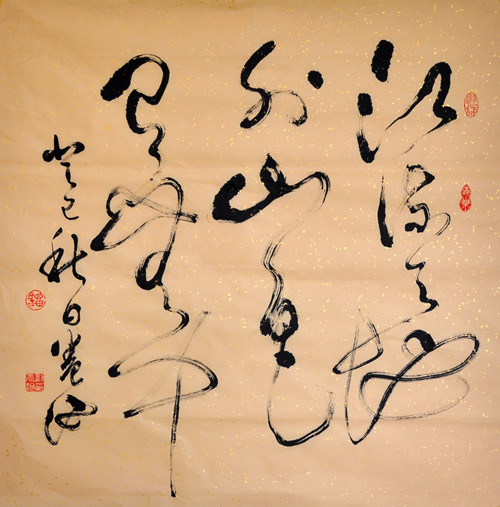 江流天地
外山色
有無中
癸巳秋日